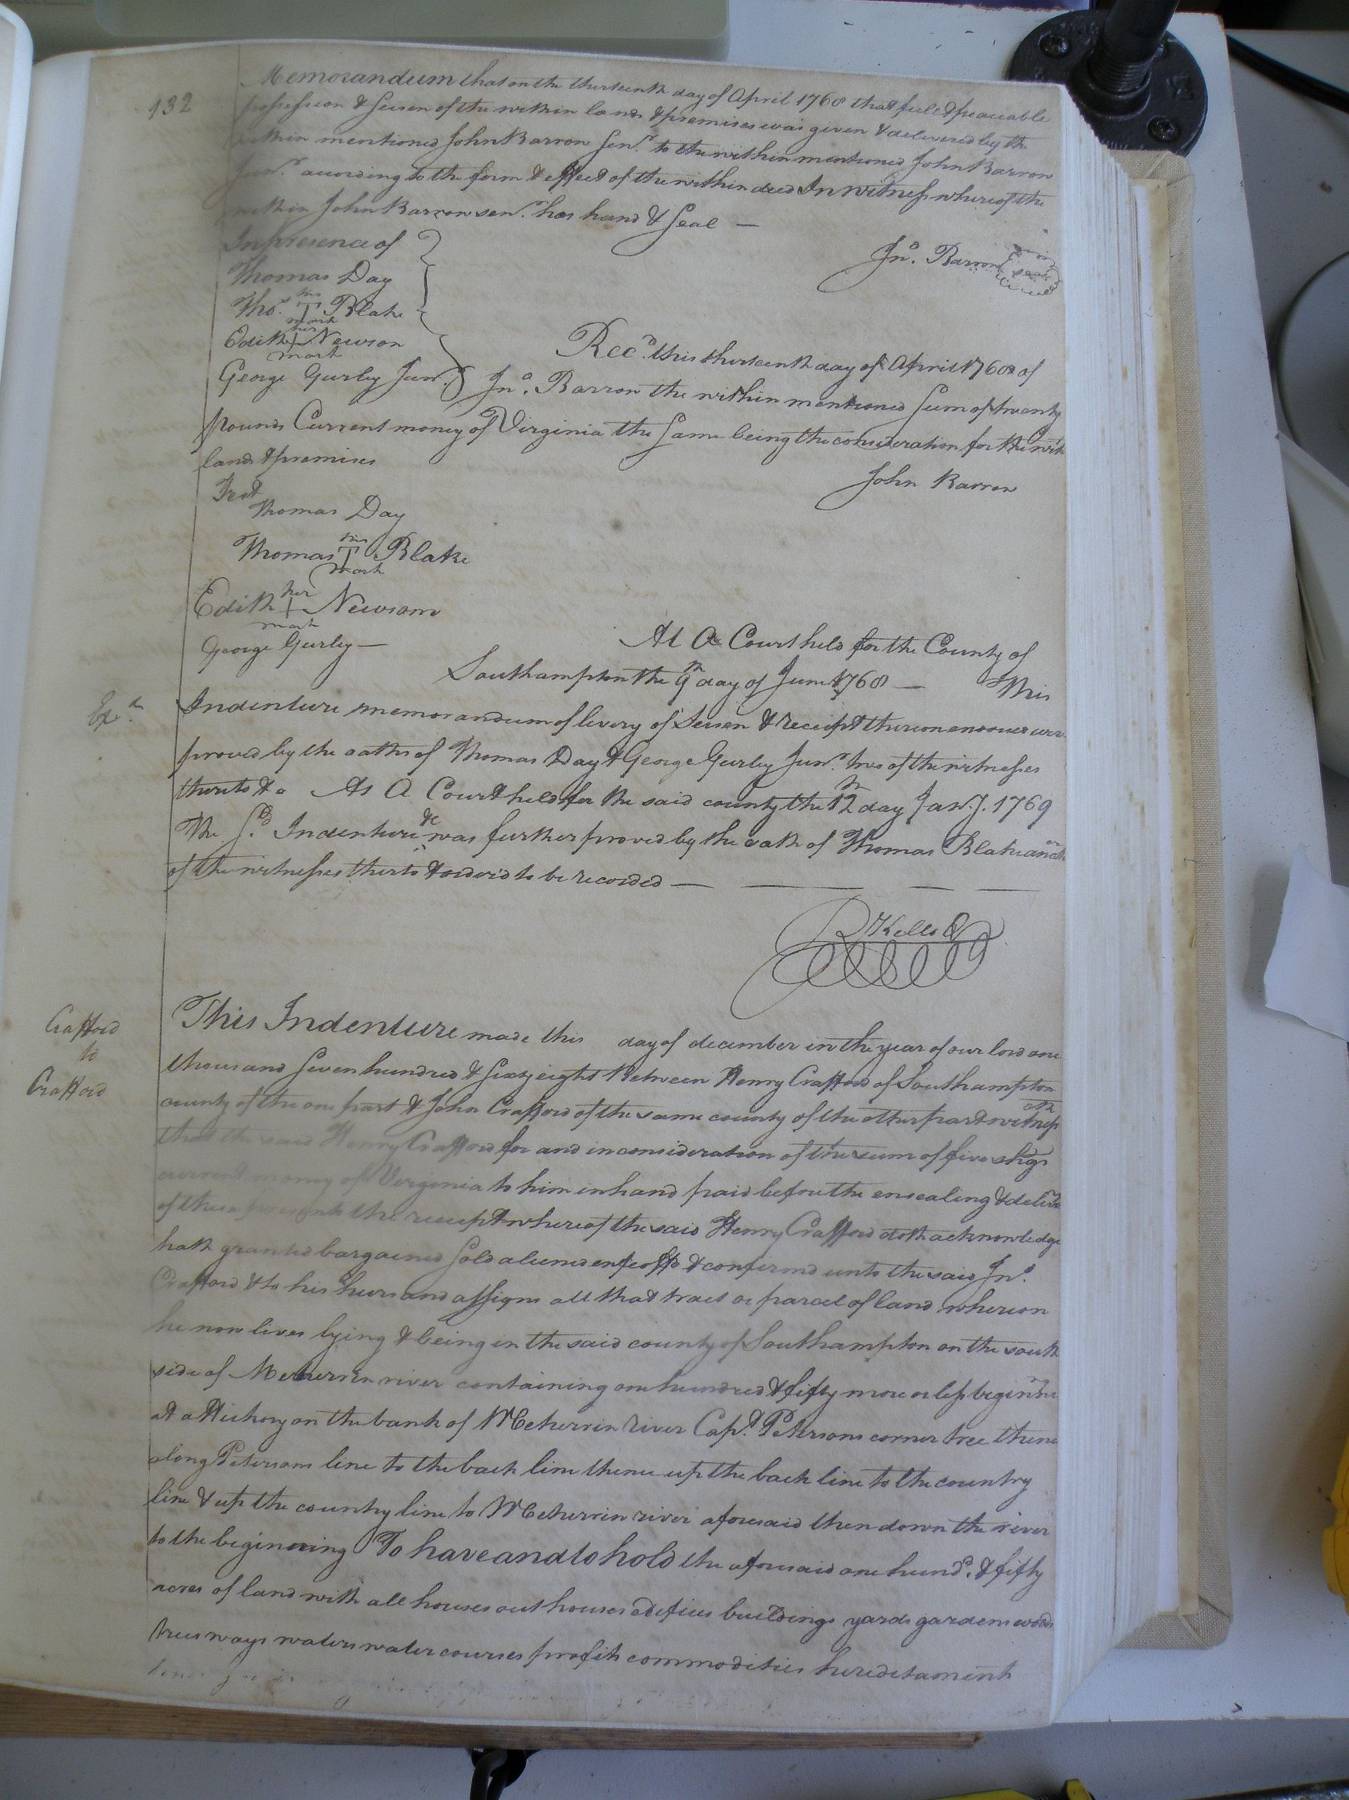 132
Memorandum that on the thirteenth day of April 1768 that full & peaceable
possession & Seisen of the within land & premises was given & delivered by the
within mentioned John Barron Senr. to the within mentioned John Barron
Junr. acording to the form & effect of the within deed In witness whereof the
within John Barron senr. has hand & Seal —
In presence of
Jno. Barron seal
Thomas Day
Thos. his T mark Blake
Edith her + mark Newsom
Recd. this thirteenth day of April 1768 of
George Gurley Junr. Jno. Barron the within mentioned Sum of twenty
pounds Current money of Virginia the Same being the consideration for the with
land & premises
John Barron
Test
Thomas Day
Thomas his T mark Blake
Edith her + mark Newsom
George Gurley —
At A Court held for the County of
Southampton the 9th day of June 1768 — This
Exd.
Indenture memorandum of livery of Seisen & receipt thereon endorsed were
proved by the oaths of Thomas Day & George Gurley Junr. two of the witnesses
thereto & a At A Court held for the said county the 12th day Jany. 1769
The Sd. Indenture &c was further proved by the oath of Thomas Blake another
of the witnesses thereto & ordered to be recorded —
R Kello
Crafford
to
Crafford
This Indenture made this day of december in the year of our lord one
thousand Seven hundred & Sixty eight Between Henry Crafford of Southampton
county of the one part & John Crafford of the same county of the other part witnesseth
that the said Henry Crafford for and in consideration of the sum of five shigs
current money of Virginia to him in hand paid before the ensealing & delive
of these presents the receipt whereof the said Henry Crafford doth acknowledge
hath granted bargained Sold aliened enfeoffd & confirmd unto the said Jno.
Crafford & to his heirs and assigns all that tract or parcel of land whereon
he now lives lying & being in the said county of Southampton on the south
side of Meherrin river containing one hundred & fifty more or less beginning
at a Hickory on the bank of Meherrin river Capt. Petersons corner tree thence
along Petersons line to the back line thence up the back line to the country
line & up the country line to Meherrin river aforesaid then down the river
to the beginning To have and to hold the aforesaid one hund. & fifty
acres of land with all houses out houses edifices buildings yards gardens woods
trees ways waters water courses profits commodities hereditament